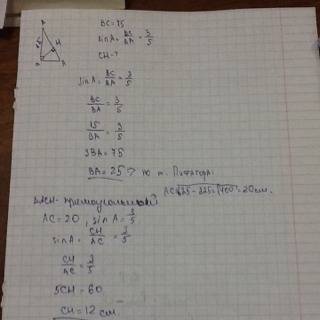 BC=15
sinA = BC/BA = 3/5
CH-?
sinA = BC/BA = 3/5
BC/BA = 3/5
15/BA = 3/5
3BA = 75
BA = 25 > по т. Пифагора
AC = √625-225 = √400 = 20 см.
прямоугольный
AC = 20, sin A = 3/5
sinA = CH/AC = 3/5
CH/AC = 3/5
5CH = 60
CH = 12 см.